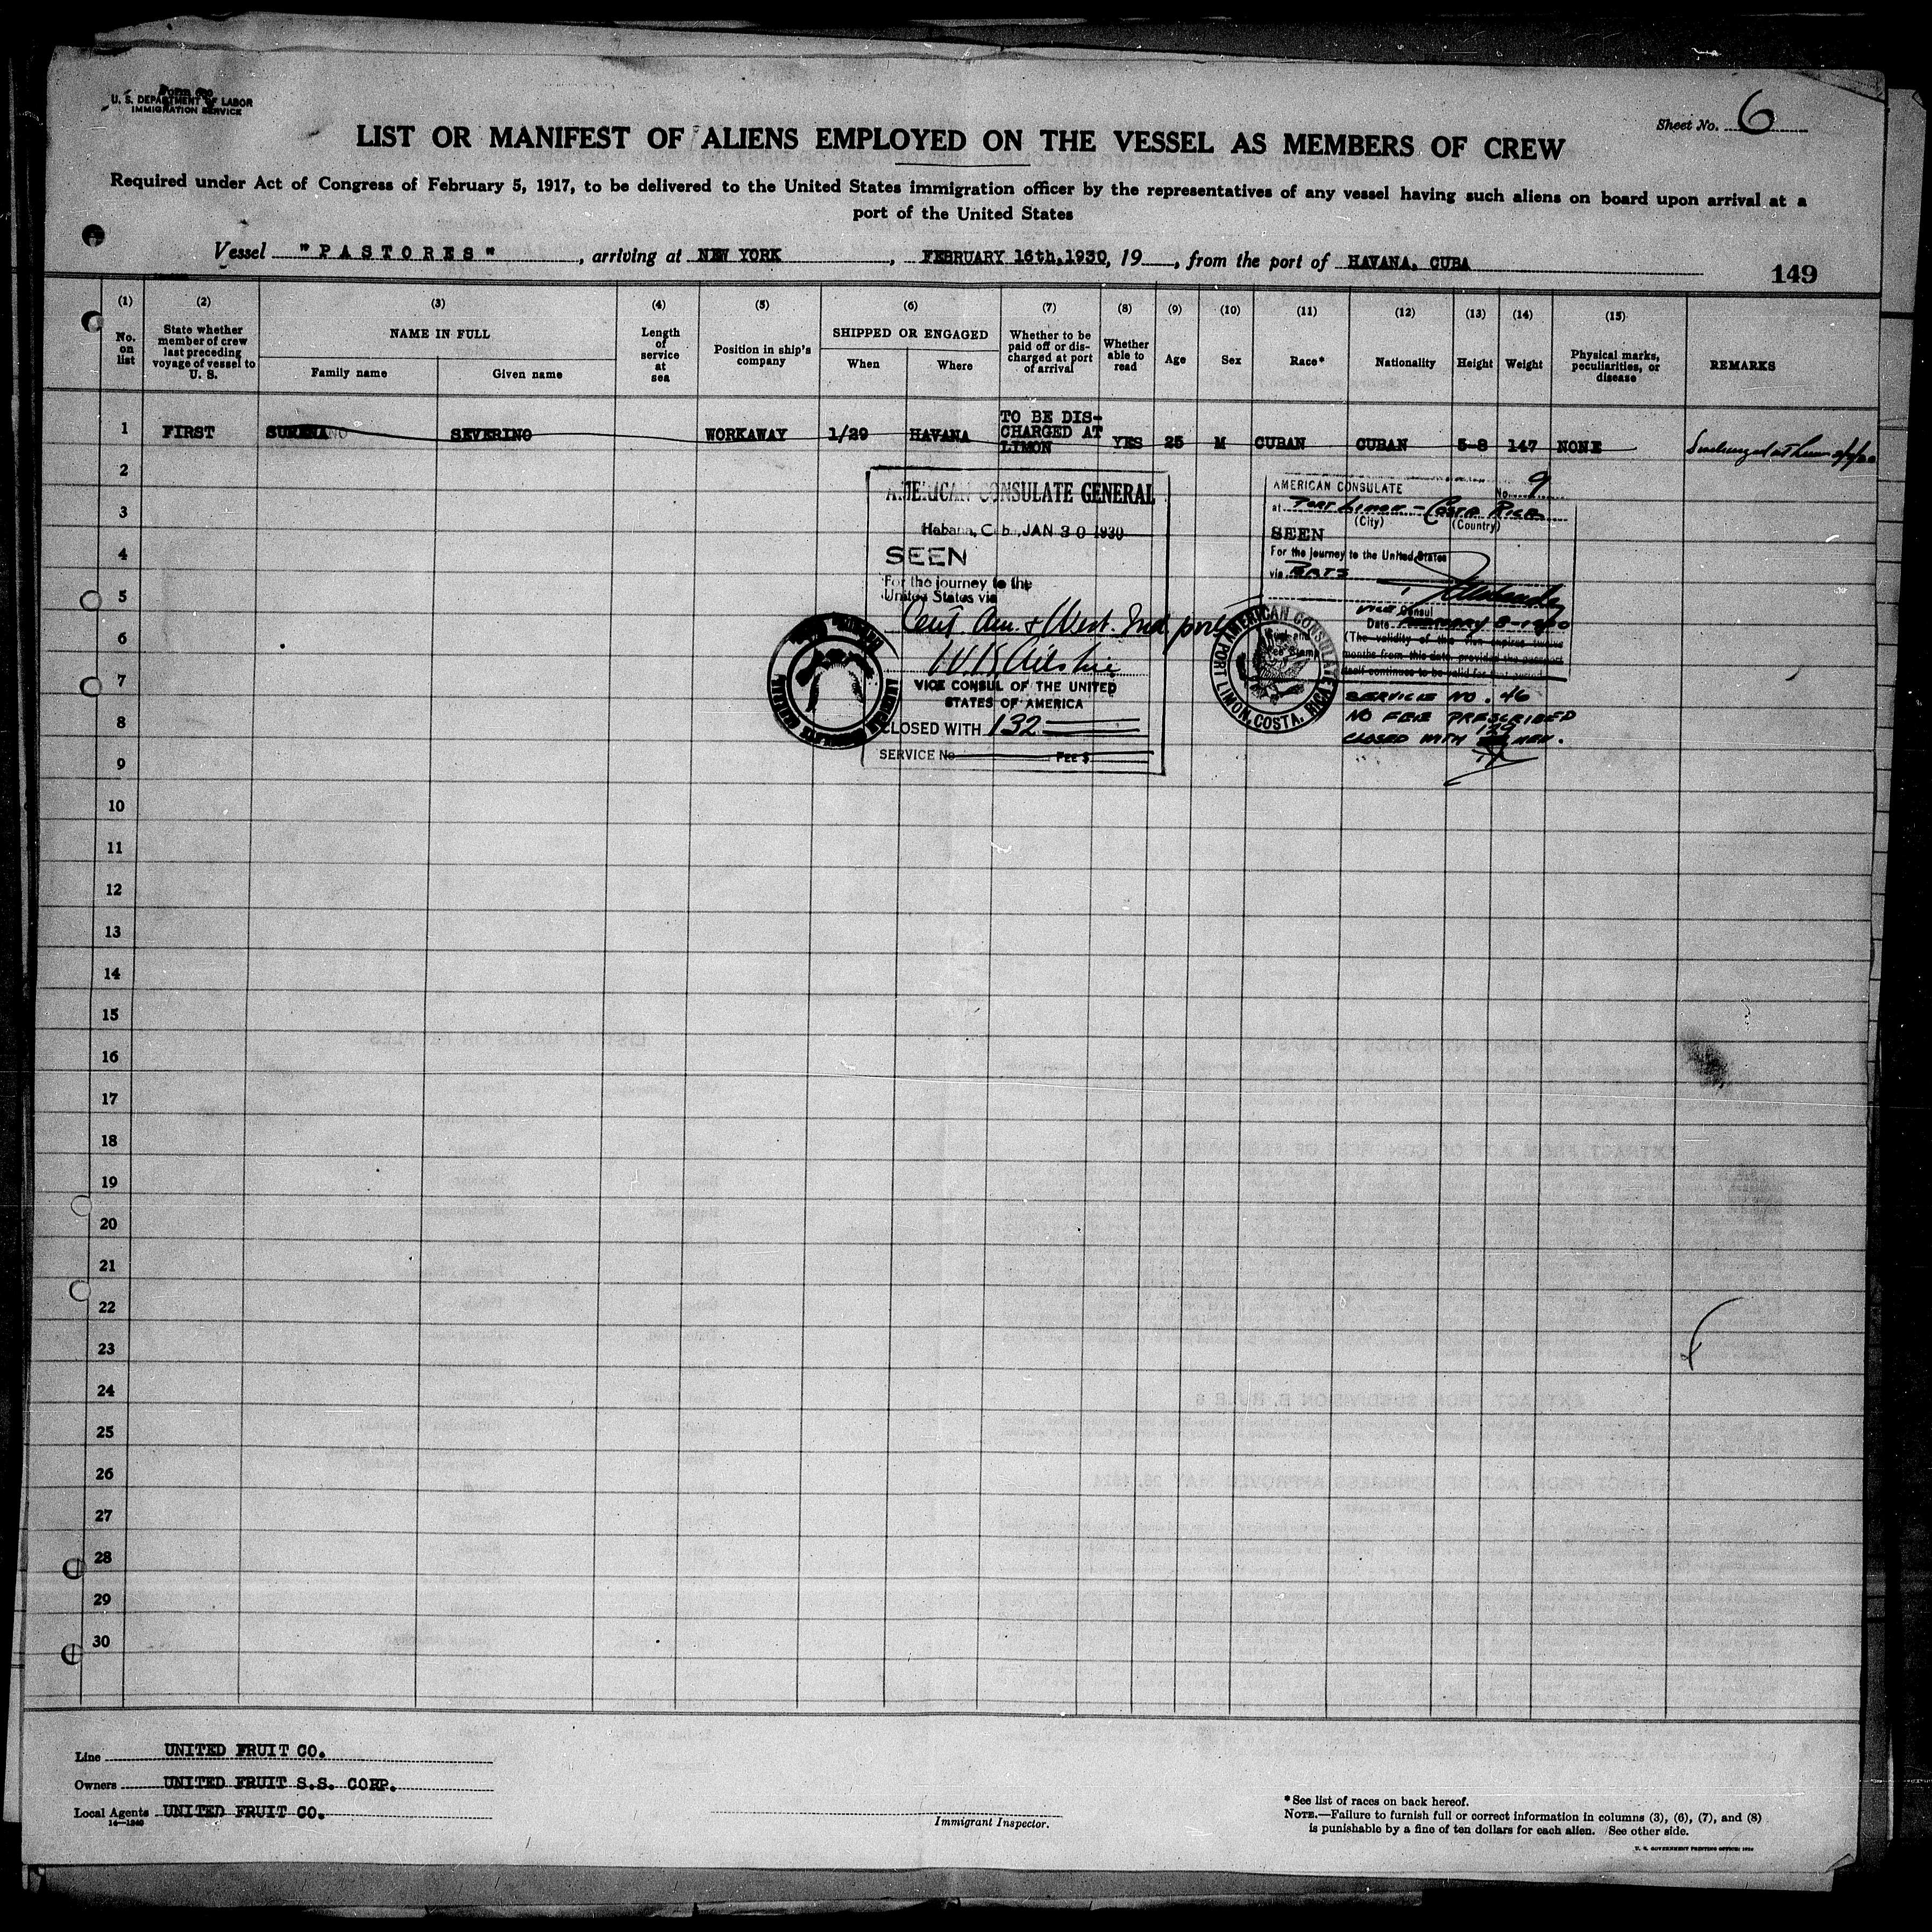 U. S. DEPARTMENT OF LABOR
IMMIGRATION SERVICE
Sheet No. 6
LIST OR MANIFEST OF ALIENS EMPLOYED ON THE VESSEL AS MEMBERS OF CREW
Required under Act of Congress of February 5, 1917, to be delivered to the United States immigration officer by the representatives of any vessel having such aliens on board upon arrival at a
port of the United States
Vessel "PASTORES", arriving at NEW YORK, FEBRUARY 16th, 1930, 19, from the port of HAVANA, CUBA
149
(1) (2) (3) (4) (5) (6) (7) (8) (9) (10) (11) (12) (13) (14) (15)
No. on list
State whether member of crew last preceding voyage of vessel to U. S.
NAME IN FULL
Family name
Given name
Length of service at sea
Position in ship's company
SHIPPED OR ENGAGED
When
Where
Whether to be paid off or discharged at port of arrival
Whether able to read
Age
Sex
Race*
Nationality
Height
Weight
Physical marks, peculiarities, or disease
REMARKS
1 FIRST SEVERINO WORKAWAY 1/29 HAVANA TO BE DIS-CHARGED AT LIMON YES 25 M CUBAN CUBAN 5-8 147 NONE
2
3
4
5
6
7
8
9
10
11
12
13
14
15
16
17
18
19
20
21
22
23
24
25
26
27
28
29
30
AMERICAN CONSULATE GENERAL
Habana, Cuba, JAN 30 1930
SEEN
For the journey to the
United States via
Cent. Am. & West. Ind ports
VICE CONSUL OF THE UNITED
STATES OF AMERICA
CLOSED WITH 132
SERVICE No FEE $
AMERICAN CONSULATE No. 9
at PORT LIMON - COSTA RICA
(City) (Country)
SEEN
For the journey to the United States
via
VICE Consul
Date FEBRUARY 8-1930
(The validity of this visa expires twelve
months from this date, provided the passport
itself continues to be valid for that period
AMERICAN CONSULATE
PORT LIMON, COSTA RICA
SERVICE NO. 46
NO FEE PRESCRIBED
CLOSED WITH 132 MEN.
Line UNITED FRUIT CO.
Owners UNITED FRUIT S.S. CORP.
Local Agents UNITED FRUIT CO.
14—1240
Immigrant Inspector.
* See list of races on back hereof.
NOTE.—Failure to furnish full or correct information in columns (3), (6), (7), and (8)
is punishable by a fine of ten dollars for each alien. See other side.